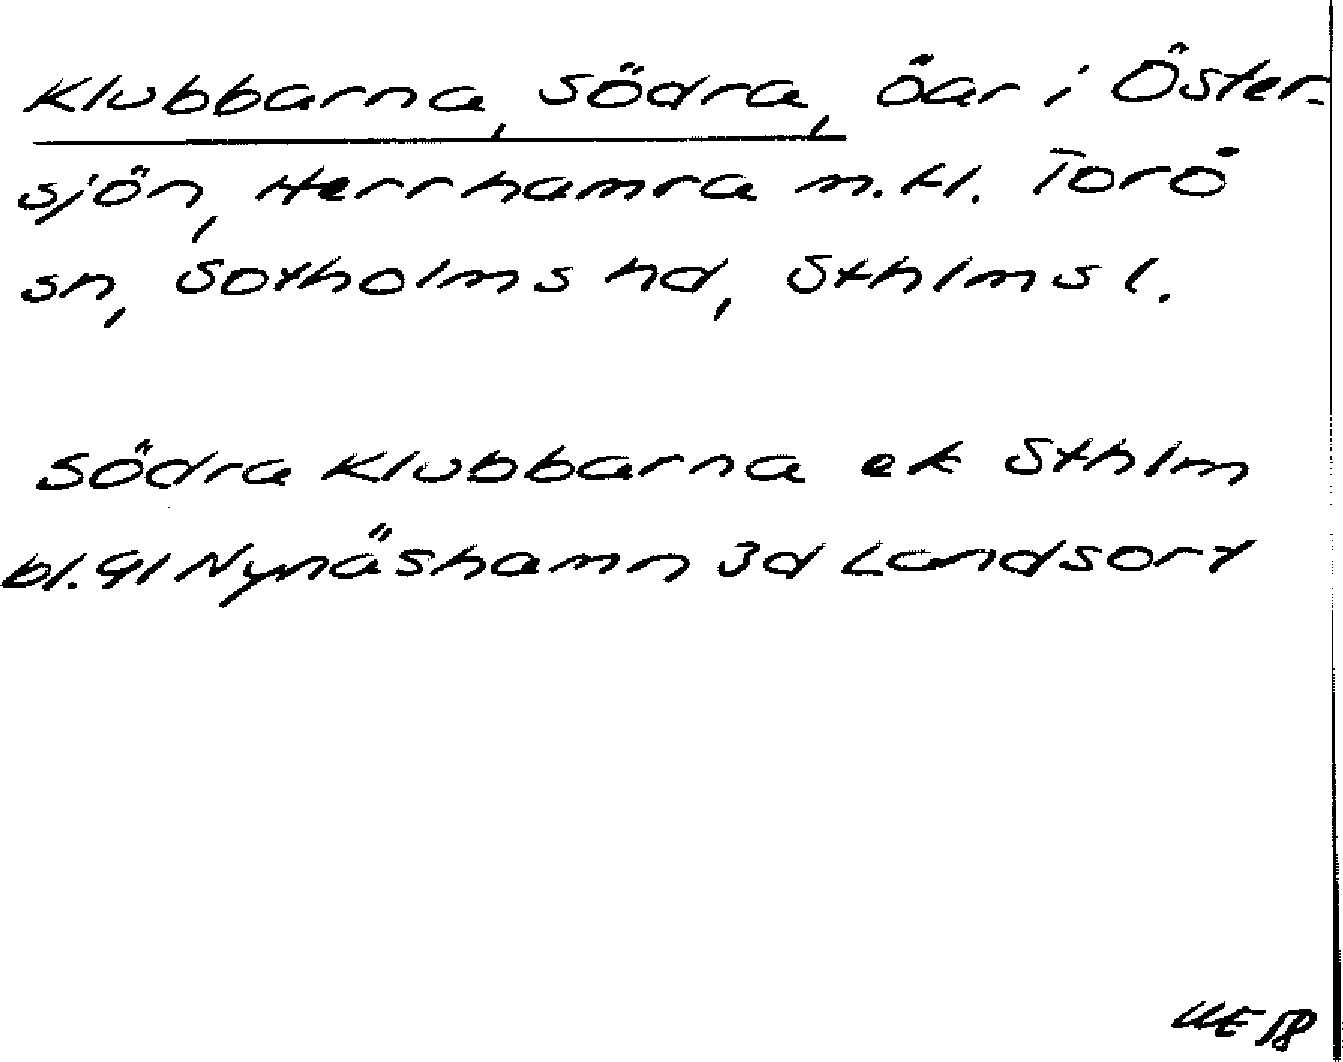 Klubbarna, Södra, öar i Öster-
sjön, Herrhamra m.fl. Torö
sn, Sotholms hd, Sthlms l.
Södra Klubbarna ek Sthlm
bl. 91 Nynäshamn 3d Landsort